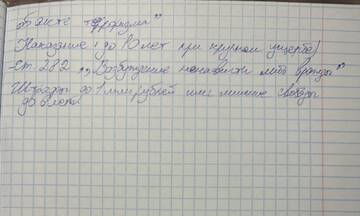 акте терроризма"
Наказание: до 10 лет при крупном ущербе)
ст. 282 „Возбуждение ненависти либо вражды"
Штрафы до 1 млн рублей или лишение свободы
до 6 лет